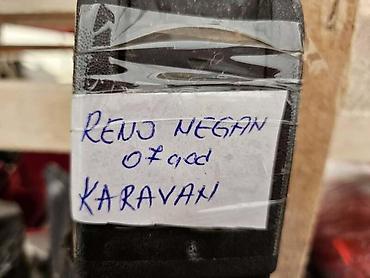 RENO MEGAN
07 god
KARAVAN